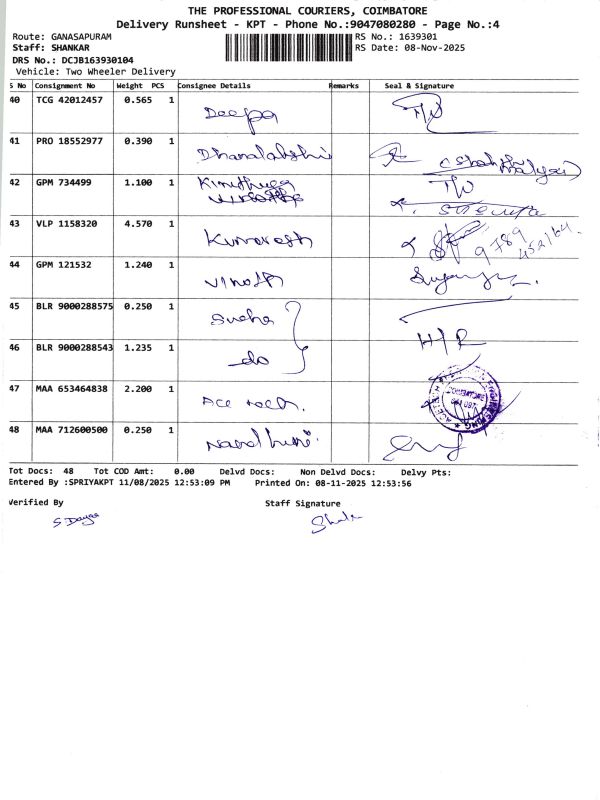 THE PROFESSIONAL COURIERS, COIMBATORE
Delivery Runsheet - KPT - Phone No.:9047080280 - Page No.:4
Route: GANASAPURAM RS No.: 1639301
Staff: SHANKAR RS Date: 08-Nov-2025
DRS No.: DCJB163930104
Vehicle: Two Wheeler Delivery
S No Consignment No Weight PCS Consignee Details Remarks Seal & Signature
40 TCG 42012457 0.565 1 Deepa
41 PRO 18552977 0.390 1 Dhanalakshmi
42 GPM 734499 1.100 1
43 VLP 1158320 4.570 1 Kumaresh 9789
44 GPM 121532 1.240 1 Vinoth
45 BLR 9000288575 0.250 1 Sneha
46 BLR 9000288543 1.235 1 do H/R
47 MAA 653464838 2.200 1 Ace tech. COIMBATORE
48 MAA 712600500 0.250 1 Nandhini
Tot Docs: 48 Tot COD Amt: 0.00 Delvd Docs: Non Delvd Docs: Delvy Pts:
Entered By :SPRIYAKPT 11/08/2025 12:53:09 PM Printed On: 08-11-2025 12:53:56
Verified By Staff Signature